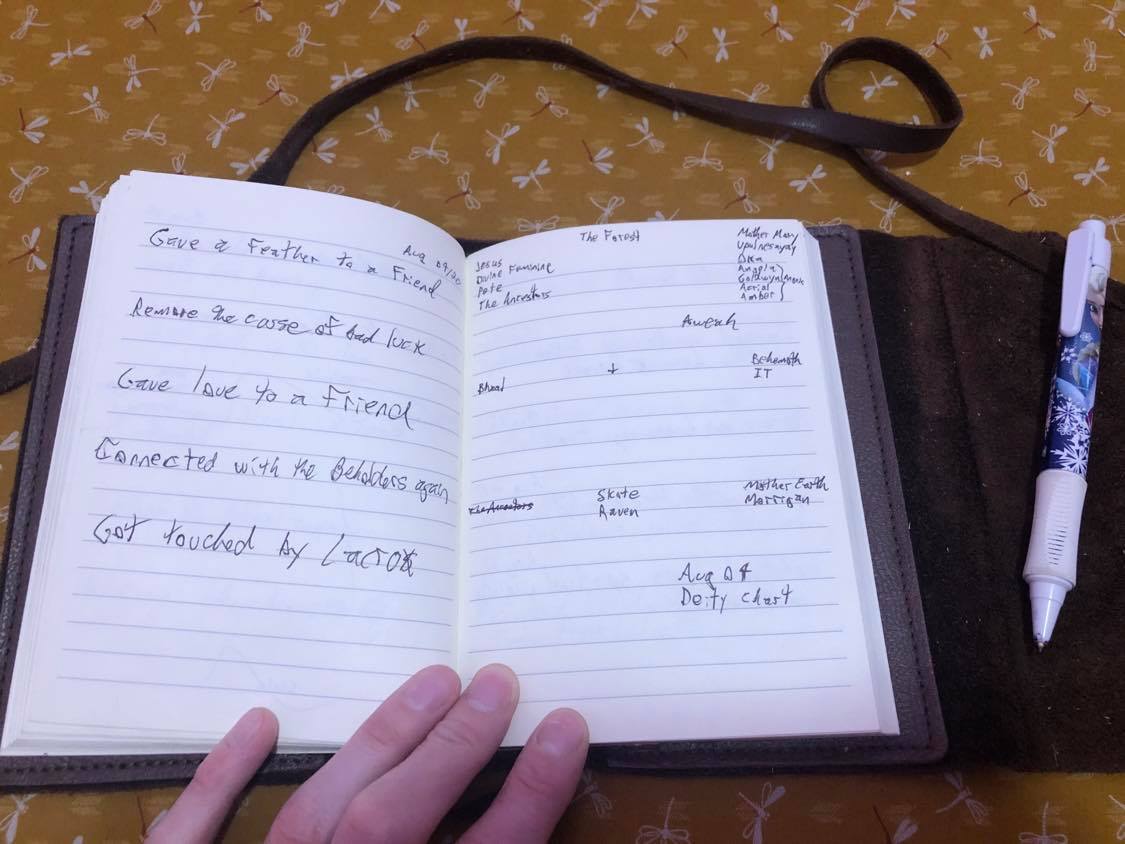 Aug 09/20
Gave a Feather to a Friend
Remove the curse of bad luck
Gave love to a Friend
Connected with the Beholders again
Got touched by
The Forest
Jesus
Divine Feminine
Pete
The Ancestors
Mother Mary
Goldwyn
Aerial
Amber
Behemoth
IT
The Ancestors
Skate
Raven
Mother Earth
Morrigan
Aug 04
Deity chart